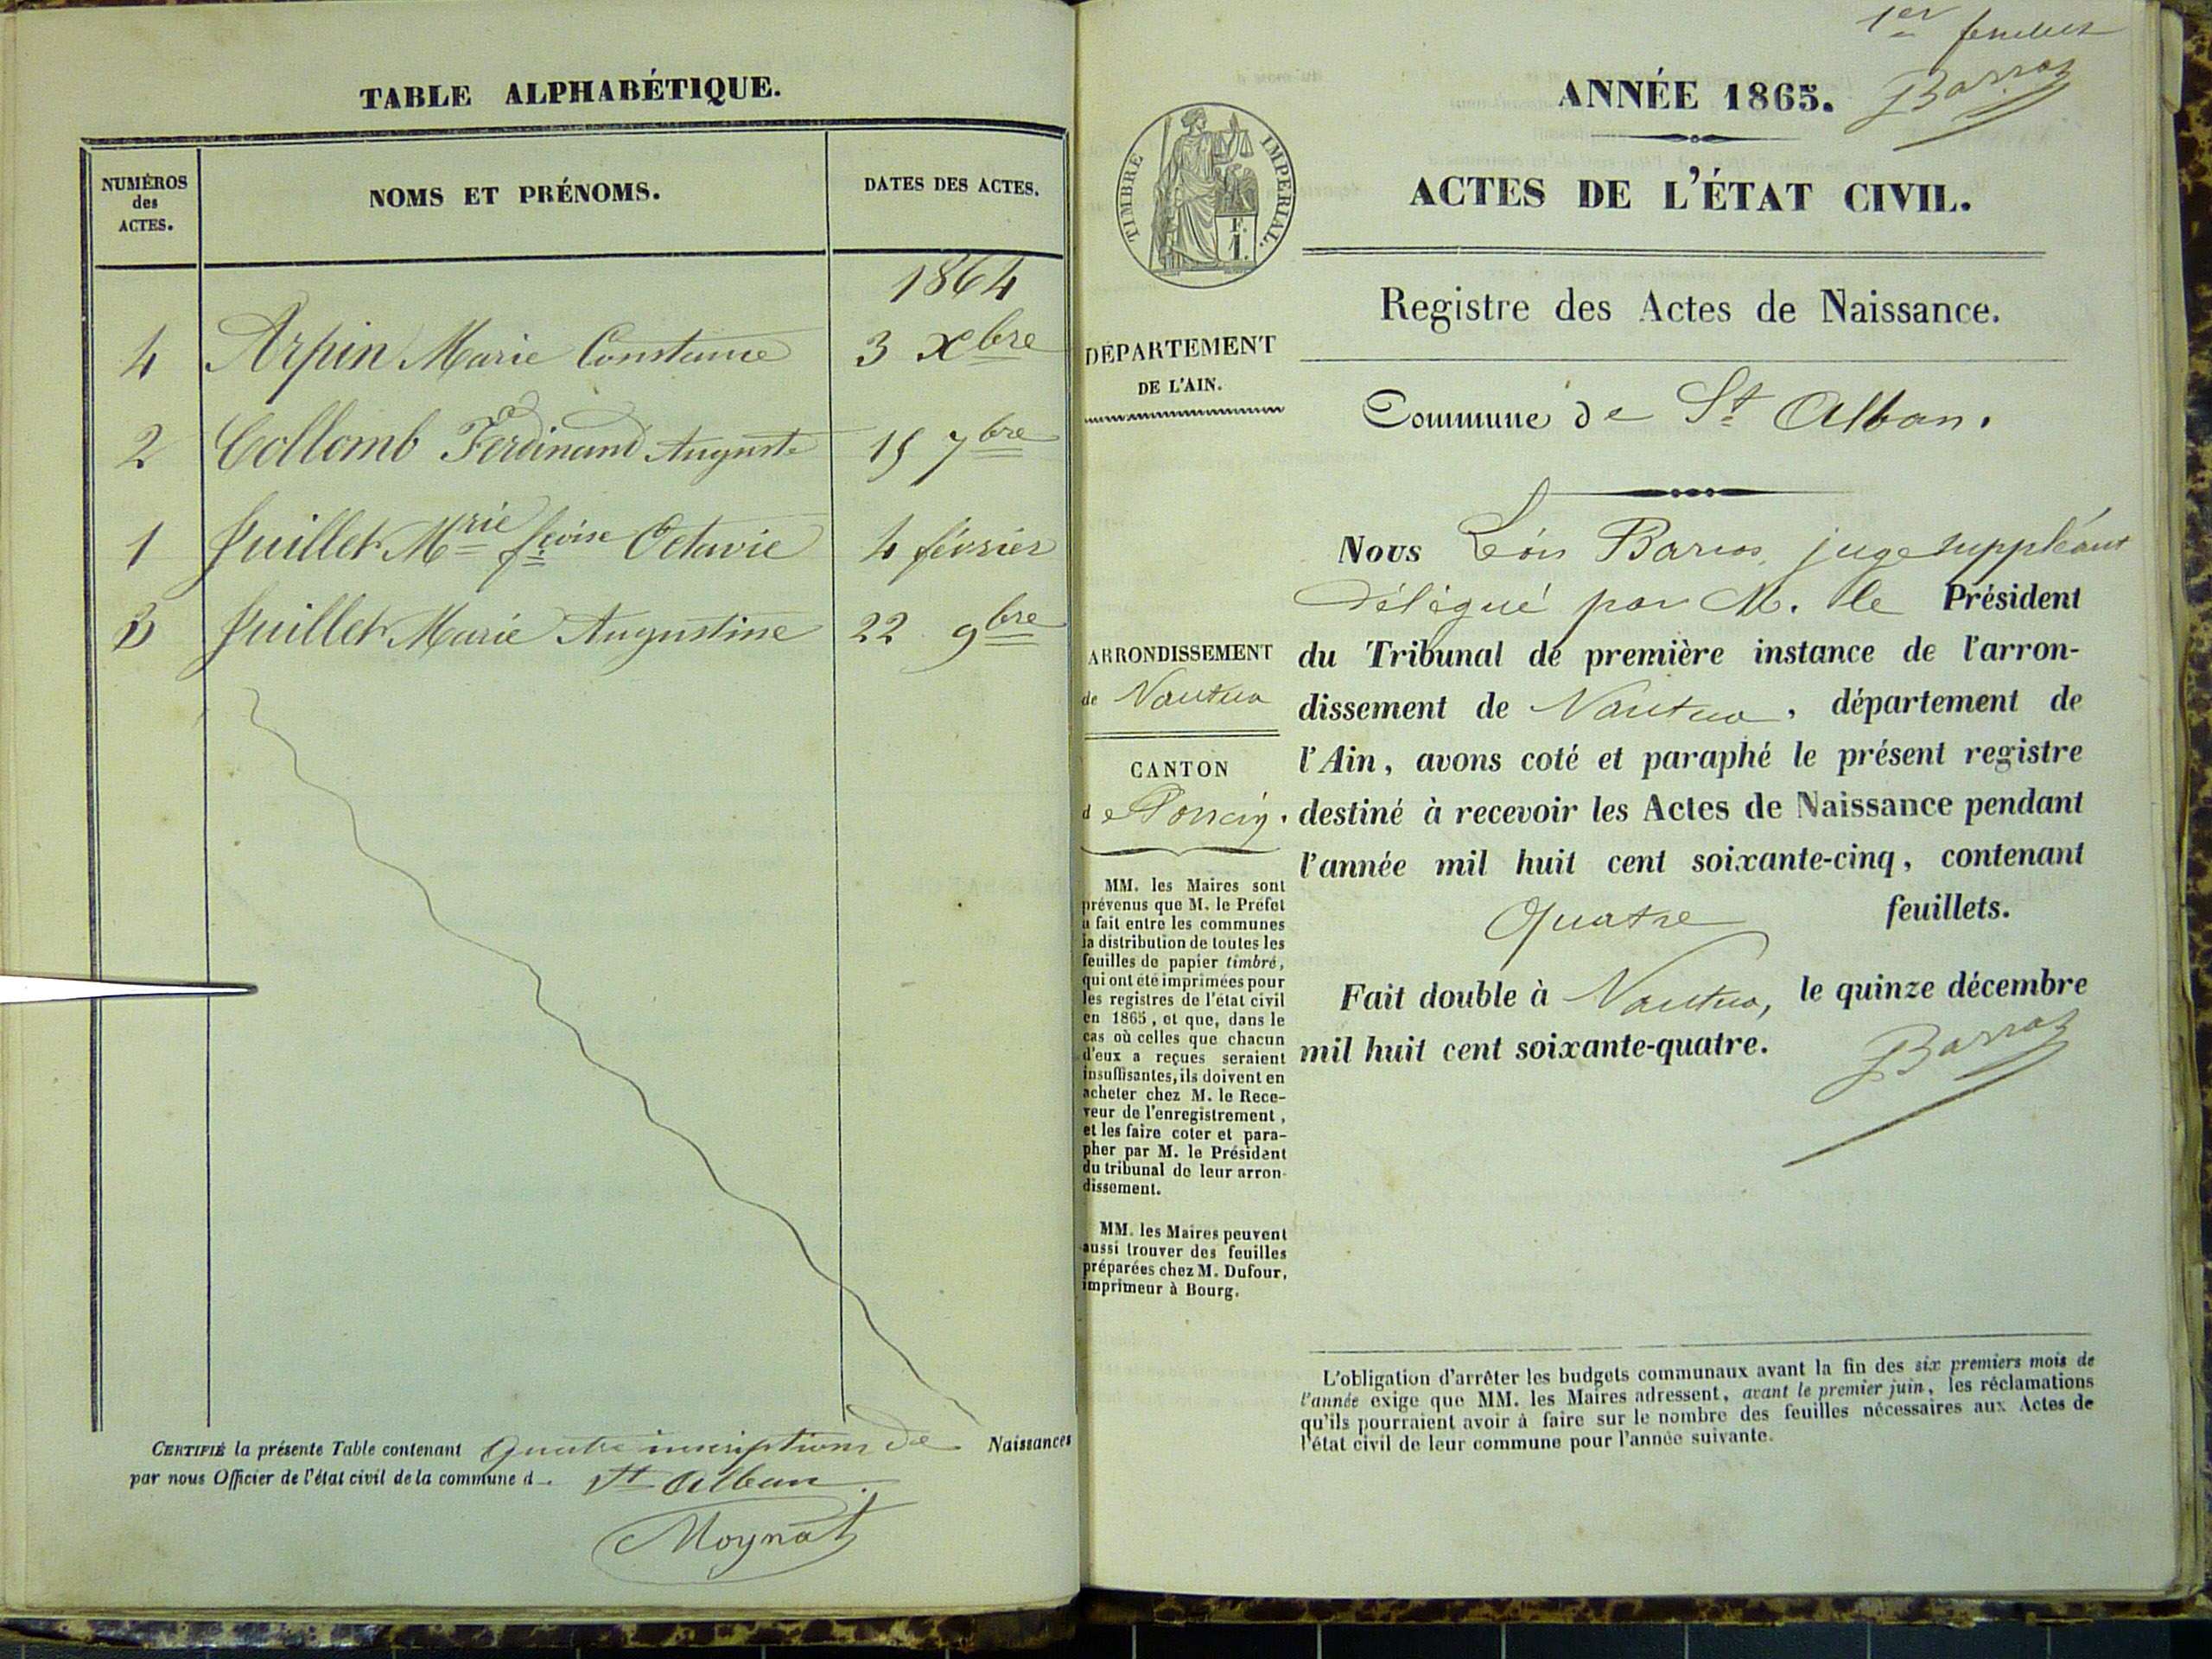 TABLE ALPHABÉTIQUE.
NUMÉROS
des
ACTES.
NOMS ET PRÉNOMS.
DATES DES ACTES.
1864
4 Arpin Marie Constance 3 Xbre
2 Collomb Ferdinand Auguste 15 7bre
1 Juillet Mrie fçoise Octavie 4 février
3 Juillet Marie Augustine 22 9bre
CERTIFIÉ la présente Table contenant Quatre inscriptions de Naissances
par nous Officier de l'état civil de la commune d St Alban.
Moynat
1er feuillet
Barros
ANNÉE 1865.
ACTES DE L'ÉTAT CIVIL.
TIMBRE IMPERIAL.
F.
1.
Registre des Actes de Naissance.
DÉPARTEMENT
DE L'AIN.
Commune de St Alban.
Nous Léon Barros, juge suppléant
délégué par M. le Président
du Tribunal de première instance de l'arron-
dissement de Nantua, département de
l'Ain, avons coté et paraphé le présent registre
destiné à recevoir les Actes de Naissance pendant
l'année mil huit cent soixante-cinq, contenant
Quatre feuillets.
Fait double à Nantua, le quinze décembre
mil huit cent soixante-quatre.
Barros
ARRONDISSEMENT
de Nantua
CANTON
de Poncin.
MM. les Maires sont
prévenus que M. le Préfet
a fait entre les communes
la distribution de toutes les
feuilles de papier timbré,
qui ont été imprimées pour
les registres de l'état civil
en 1865, et que, dans le
cas où celles que chacun
d'eux a reçues seraient
insuffisantes, ils doivent en
acheter chez M. le Rece-
veur de l'enregistrement,
et les faire coter et para-
pher par M. le Président
du tribunal de leur arron-
dissement.
MM. les Maires peuvent
aussi trouver des feuilles
préparées chez M. Dufour,
imprimeur à Bourg.
L'obligation d'arrêter les budgets communaux avant la fin des six premiers mois de
l'année exige que MM. les Maires adressent, avant le premier juin, les réclamations
qu'ils pourraient avoir à faire sur le nombre des feuilles nécessaires aux Actes de
l'état civil de leur commune pour l'année suivante.